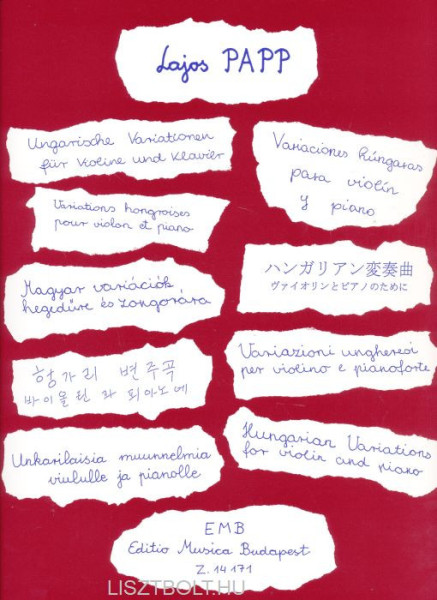 Lajos PAPP
Ungarische Variationen
für Violine und Klavier
Variaciones húngaras
para violín
y piano
Variations hongroises
pour violon et piano
ハンガリアン変奏曲
ヴァイオリンとピアノのために
Magyar variációk
hegedűre és zongorára
Variazioni ungheresi
per violino e pianoforte
헝가리 변주곡
바이올린 과 피아노에
Unkarilaisia muunnelmia
viululle ja pianolle
Hungarian Variations
for violin and piano
EMB
Editio Musica Budapest
Z. 14 171
LISZTBOLT.HU